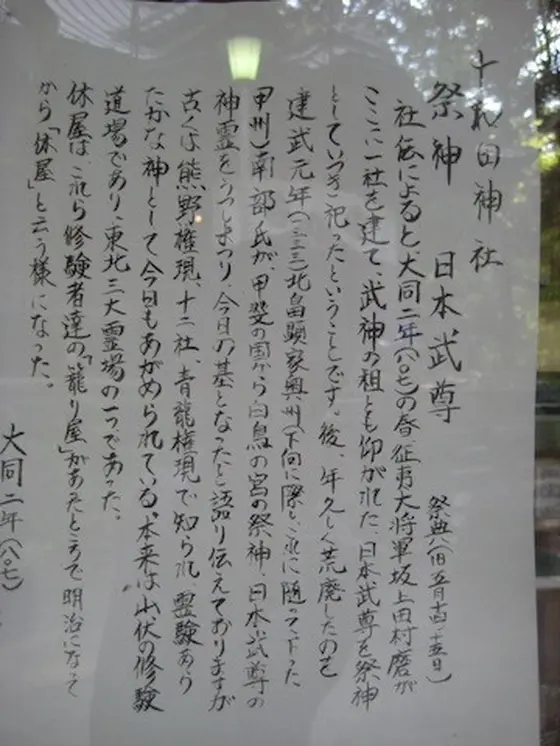 十和田神社
祭神　日本武尊
祭典(旧五月十四、十五日)
社伝によると大同二年(八〇七)の昔、征夷大将軍坂上田村麿が
ここに一社を建て、武神の祖とも仰がれた、日本武尊を祭神
としていつき祀ったということです。後、年久しく荒廃したのを
建武元年(一三三三)北畠顕家奥州(下向に際し、これに随って下った
甲州)南部氏が、甲斐の国から白鳥の宮の祭神、日本武尊の
神霊をうつしまつり、今日の基となったと語り伝えておりますが
古くは熊野権現、十二社、青龍権現で知られ霊験あら
たかな神として今日もあがめられている。本来は山伏の修験
道場であり、東北三大霊場の一つであった。
休屋は、これら修験者達の「籠り屋」があったところで明治になって
から「休屋」と云う様になった。
大同二年(八〇七)